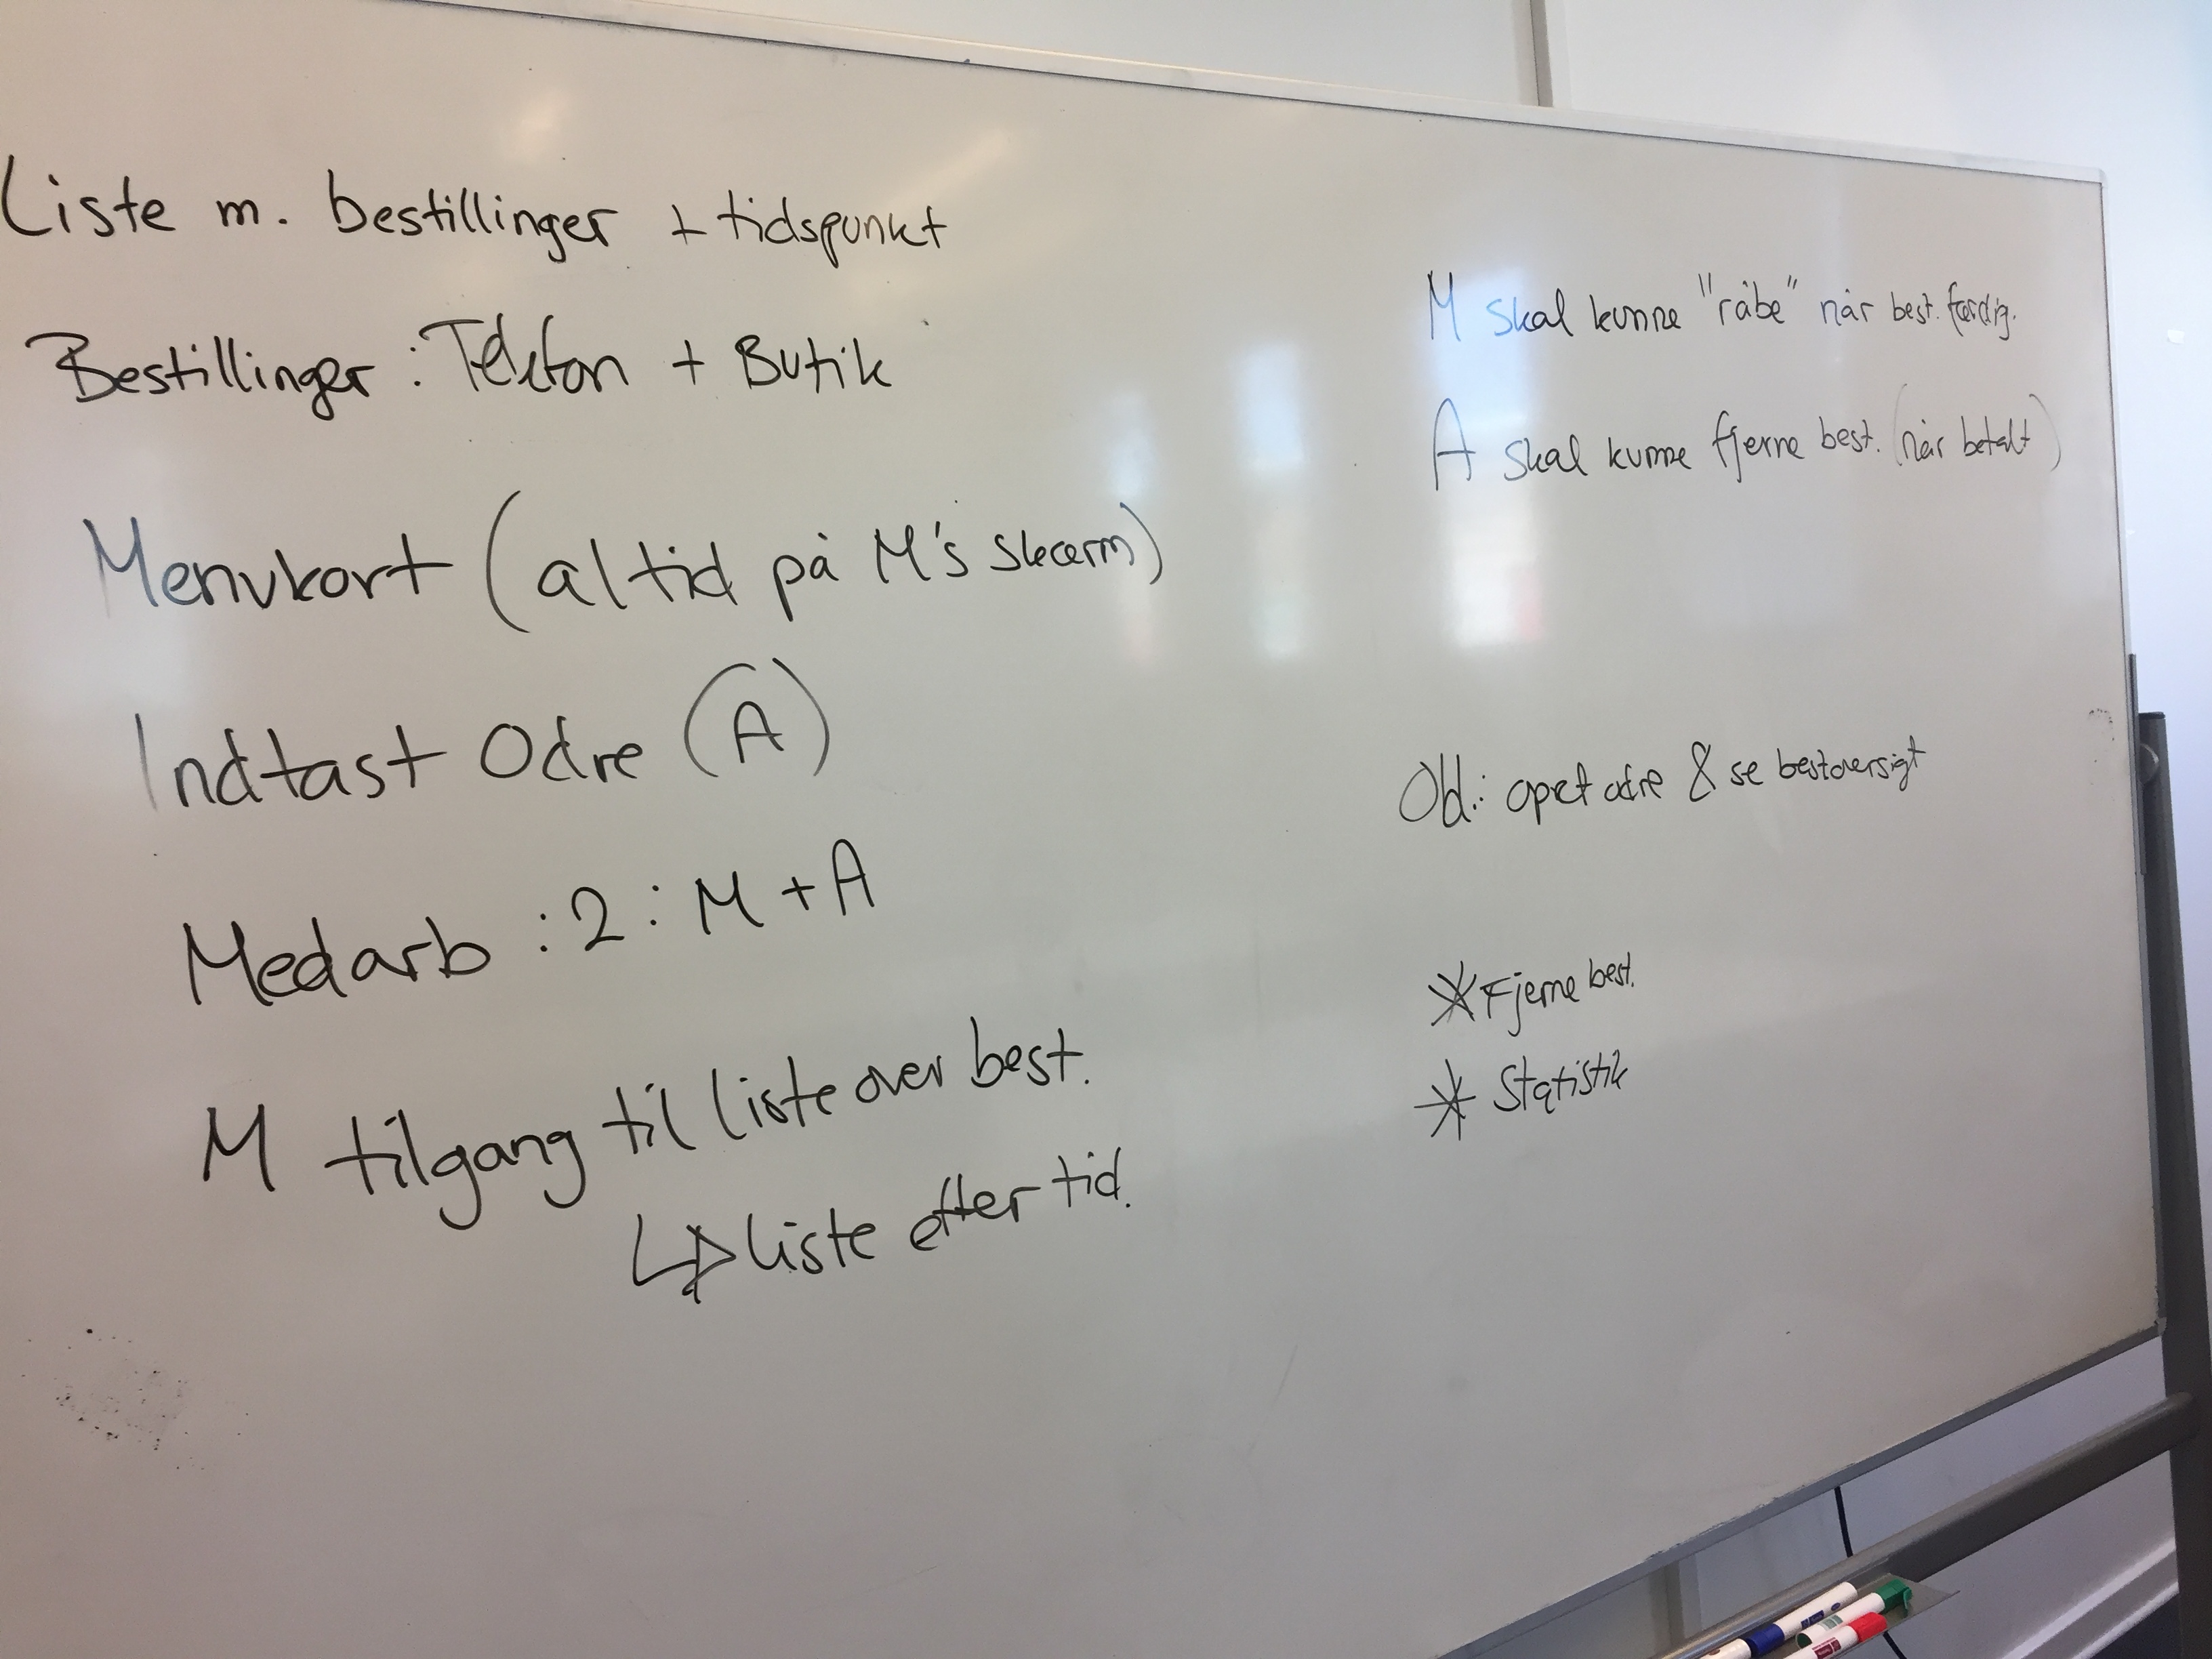 Liste m. bestillinger + tidspunkt
Bestillinger : Telefon + Butik
Menukort (altid på M's skærm)
Indtast Odre (A)
Medarb : 2 : M + A
M tilgang til liste over best.
↳ liste efter tid.
M skal kunne "råbe" når best. færdig.
A skal kunne fjerne best. (når betalt)
opret odre & se bestoversigt
* Fjerne best.
* Statistik